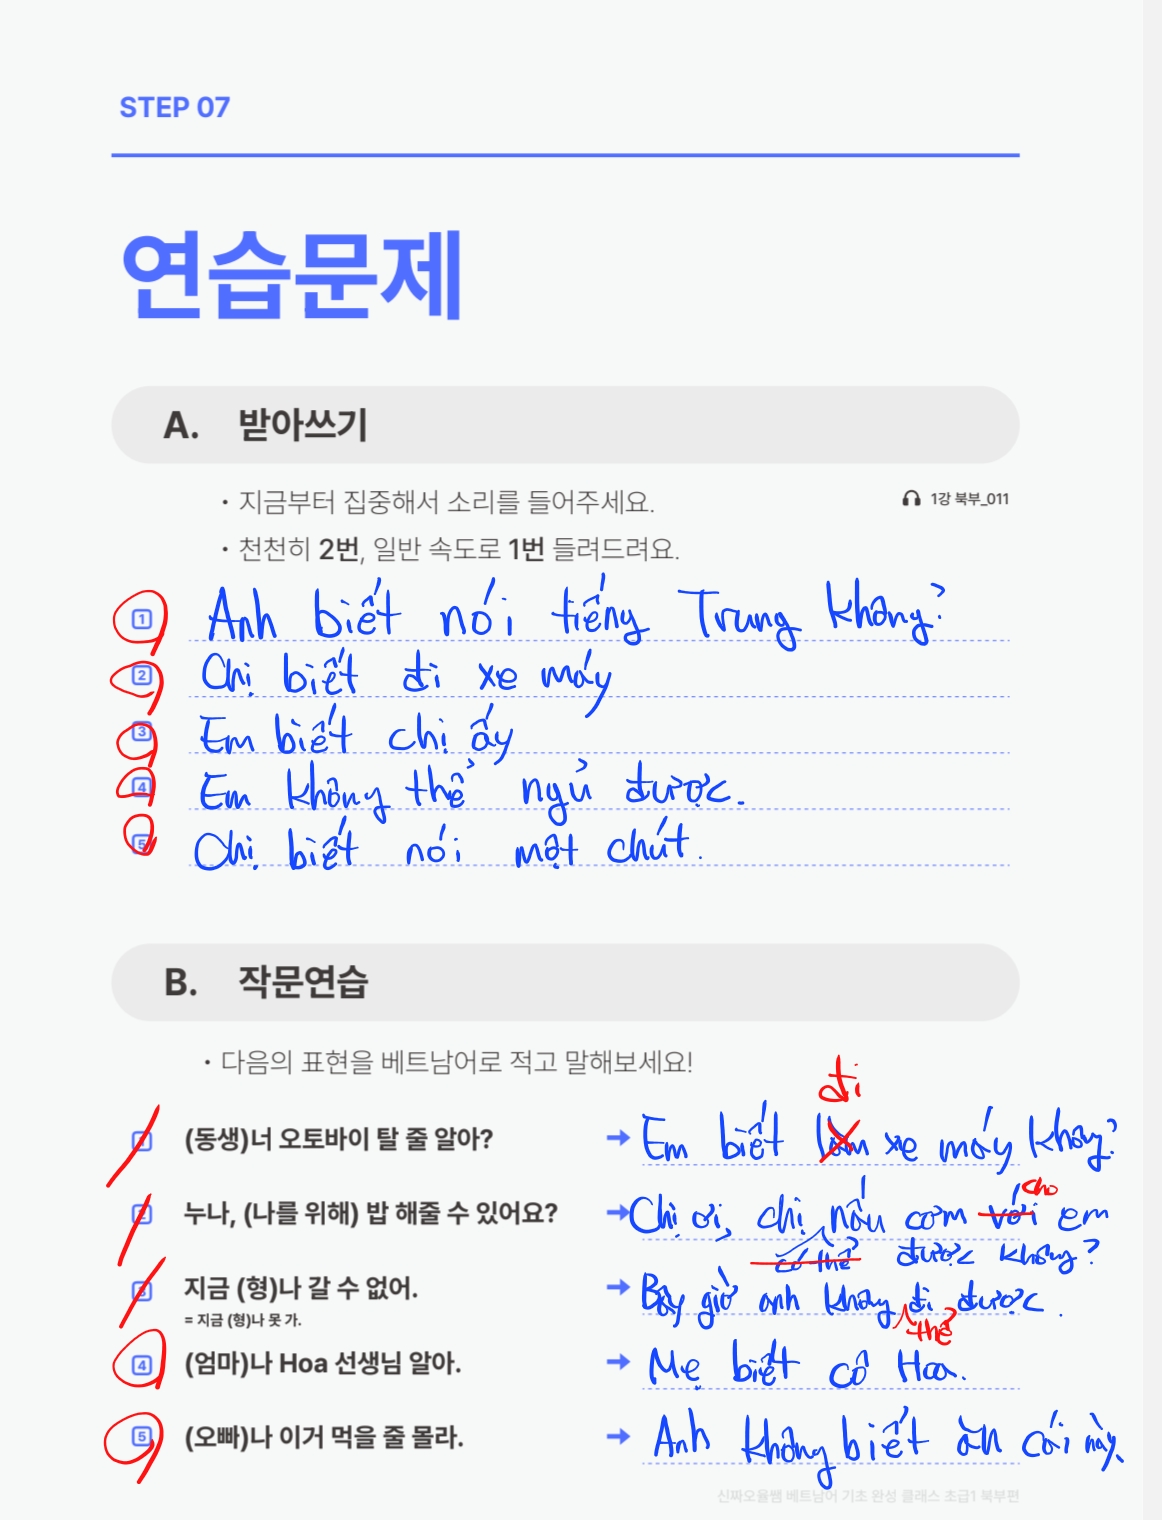 STEP 07
연습문제
A. 받아쓰기
• 지금부터 집중해서 소리를 들어주세요.
1강 북부_011
• 천천히 2번, 일반 속도로 1번 들려드려요.
1 Anh biết nói tiếng Trung không?
2 Chị biết đi xe máy
3 Em biết chị ấy
4 Em không thể ngủ được.
5 Chị biết nói một chút.
B. 작문연습
• 다음의 표현을 베트남어로 적고 말해보세요!
đi
1 (동생)너 오토바이 탈 줄 알아? → Em biết làm xe máy không?
cho
2 누나, (나를 위해) 밥 해줄 수 있어요? → Chị ơi, chị nấu cơm với em
có thể được không?
3 지금 (형)나 갈 수 없어. → Bây giờ anh không đi được.
= 지금 (형)나 못 가.
thể
4 (엄마)나 Hoa 선생님 알아. → Mẹ biết cô Hoa.
5 (오빠)나 이거 먹을 줄 몰라. → Anh không biết ăn cái này.
신짜오율쌤 베트남어 기초 완성 클래스 초급1 북부편